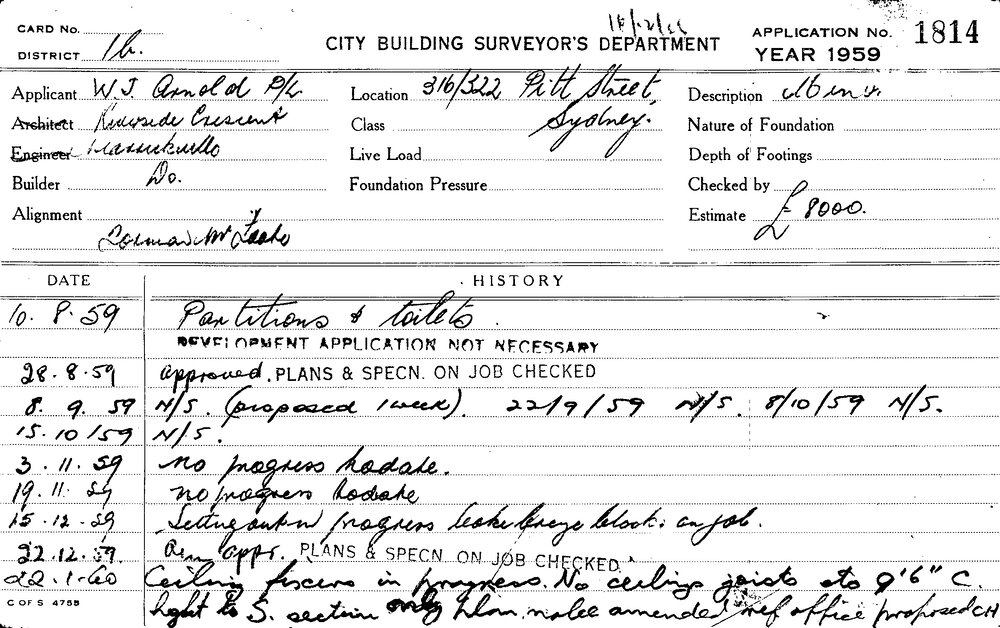 CARD No.
DISTRICT 1b.
CITY BUILDING SURVEYOR'S DEPARTMENT
APPLICATION No. 1814
YEAR 1959
Applicant W. J. Arnold P/L
Location 316/322 Pitt Street,
Sydney.
Description
Architect Riverside Crescent
Class
Nature of Foundation
Engineer
Live Load
Depth of Footings
Builder Do.
Foundation Pressure
Checked by
Alignment
Estimate £ 8000.
DATE HISTORY
10. 8. 59 Partitions & toilets.
DEVELOPMENT APPLICATION NOT NECESSARY
28.8.59 approved. PLANS & SPECN. ON JOB CHECKED
8. 9. 59 N/S. (proposed 1 week). 22/9/59 N/S. 8/10/59 N/S.
15.10/59 N/S.
3.11.59 No progress to date.
19.11.59 no progress to date
15.12.59 Setting out in progress coke breeze blocks on job.
22.12.59. appr. PLANS & SPECN. ON JOB CHECKED
22.1.60 Ceiling in progress. No ceiling joists etc 9'6" C.
hght to S. section only plan amended ref office proposed CH
C OF S 475B